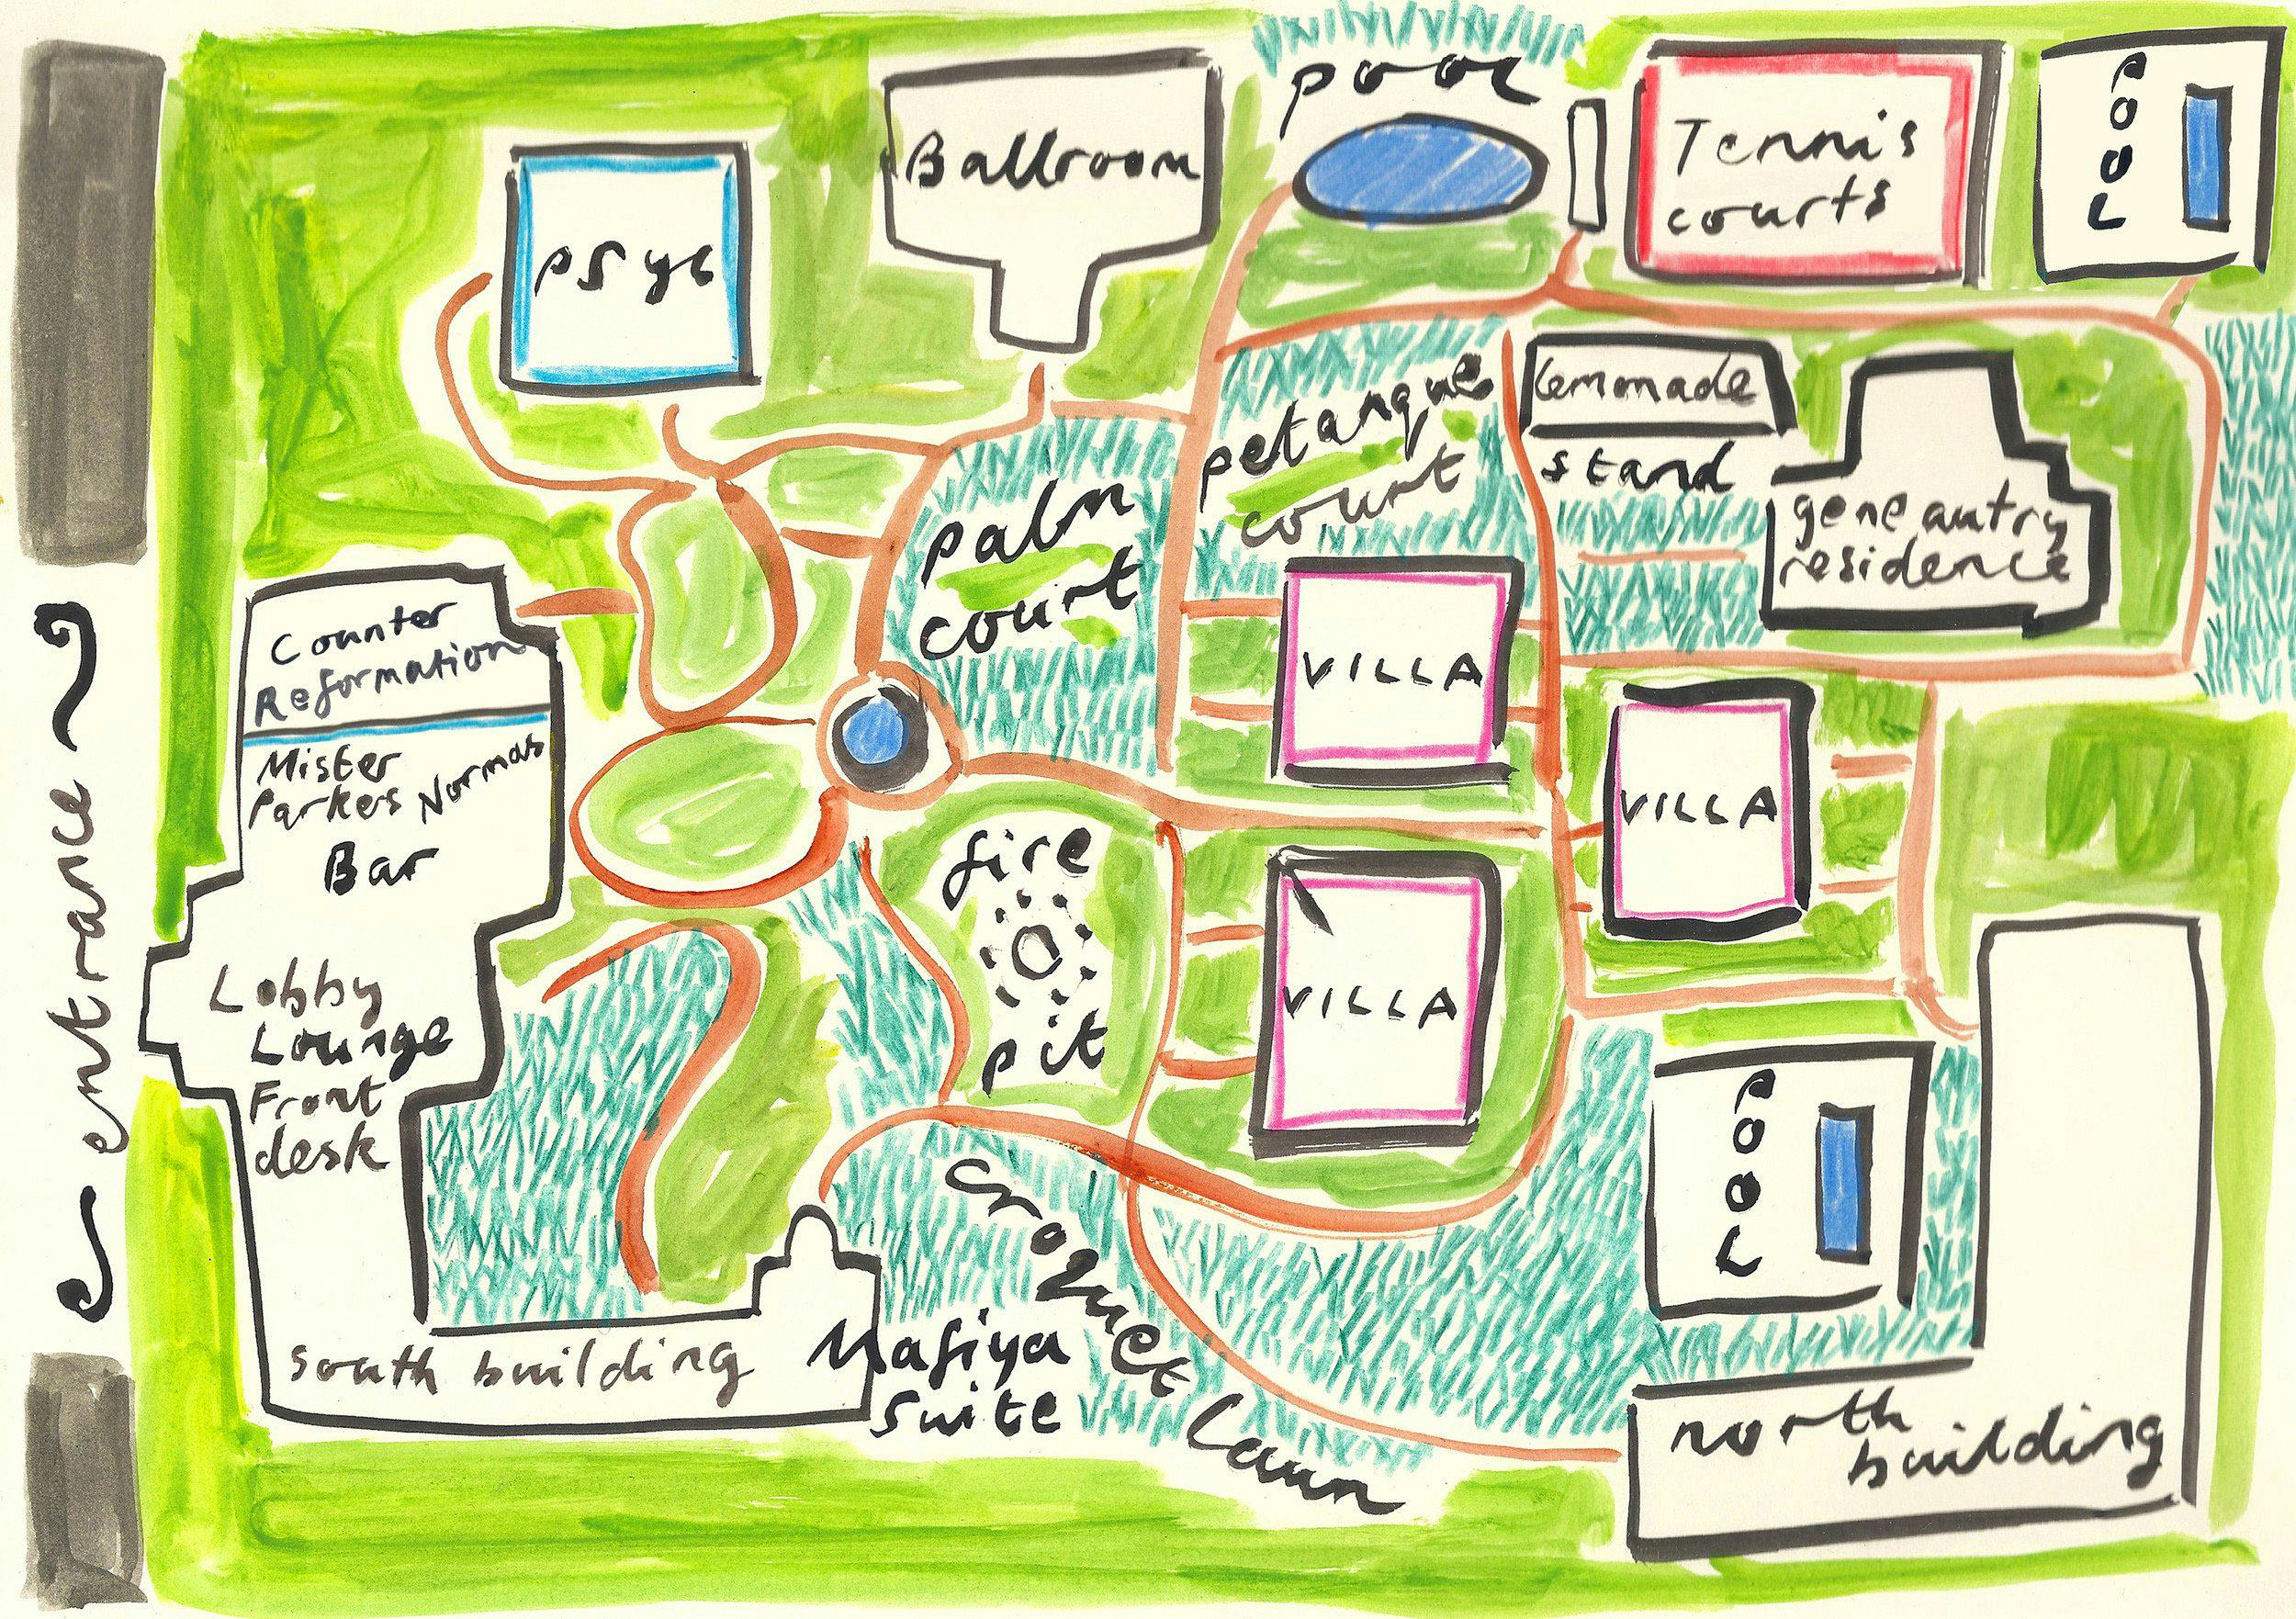 pool
POOL
Ballroom
Tennis
courts
PSYC
lemonade
stand
petanque
court
palm
court
gene autry
residence
Counter
Reformation
Mister
Parkers
Normas
Bar
VILLA
VILLA
VILLA
fire
pit
entrance
Lobby
Lounge
Front
desk
POOL
croquet lawn
south building
Mafiya
Suite
north
building